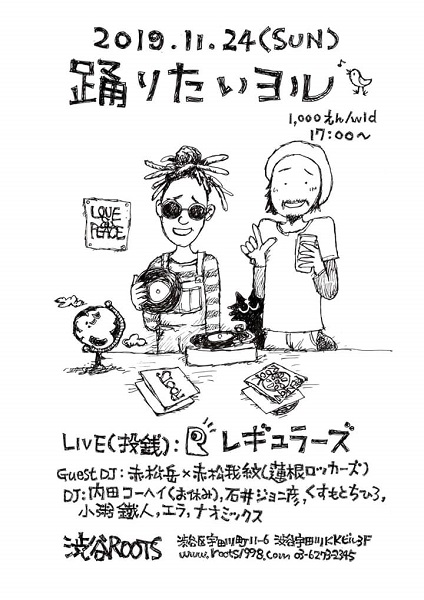 2019.11.24(SUN)
踊りたいヨル
1,000えん/w1d
17:00〜
LOVE
&
PEACE
ROOTS
LIVE(投銭): R レギュラーズ
Guest DJ: 赤松岳×赤松我紋(蓮根ロッカーズ)
DJ: 内田コーヘイ(お休み), 石井ジョニ彦, くすもとちひろ,
小粥鐵人, エラ, ナオミックス
渋谷ROOTS
渋谷区宇田川町11-6 渋谷宇田川KKビル3F
www.roots1998.com 03-6273-2345